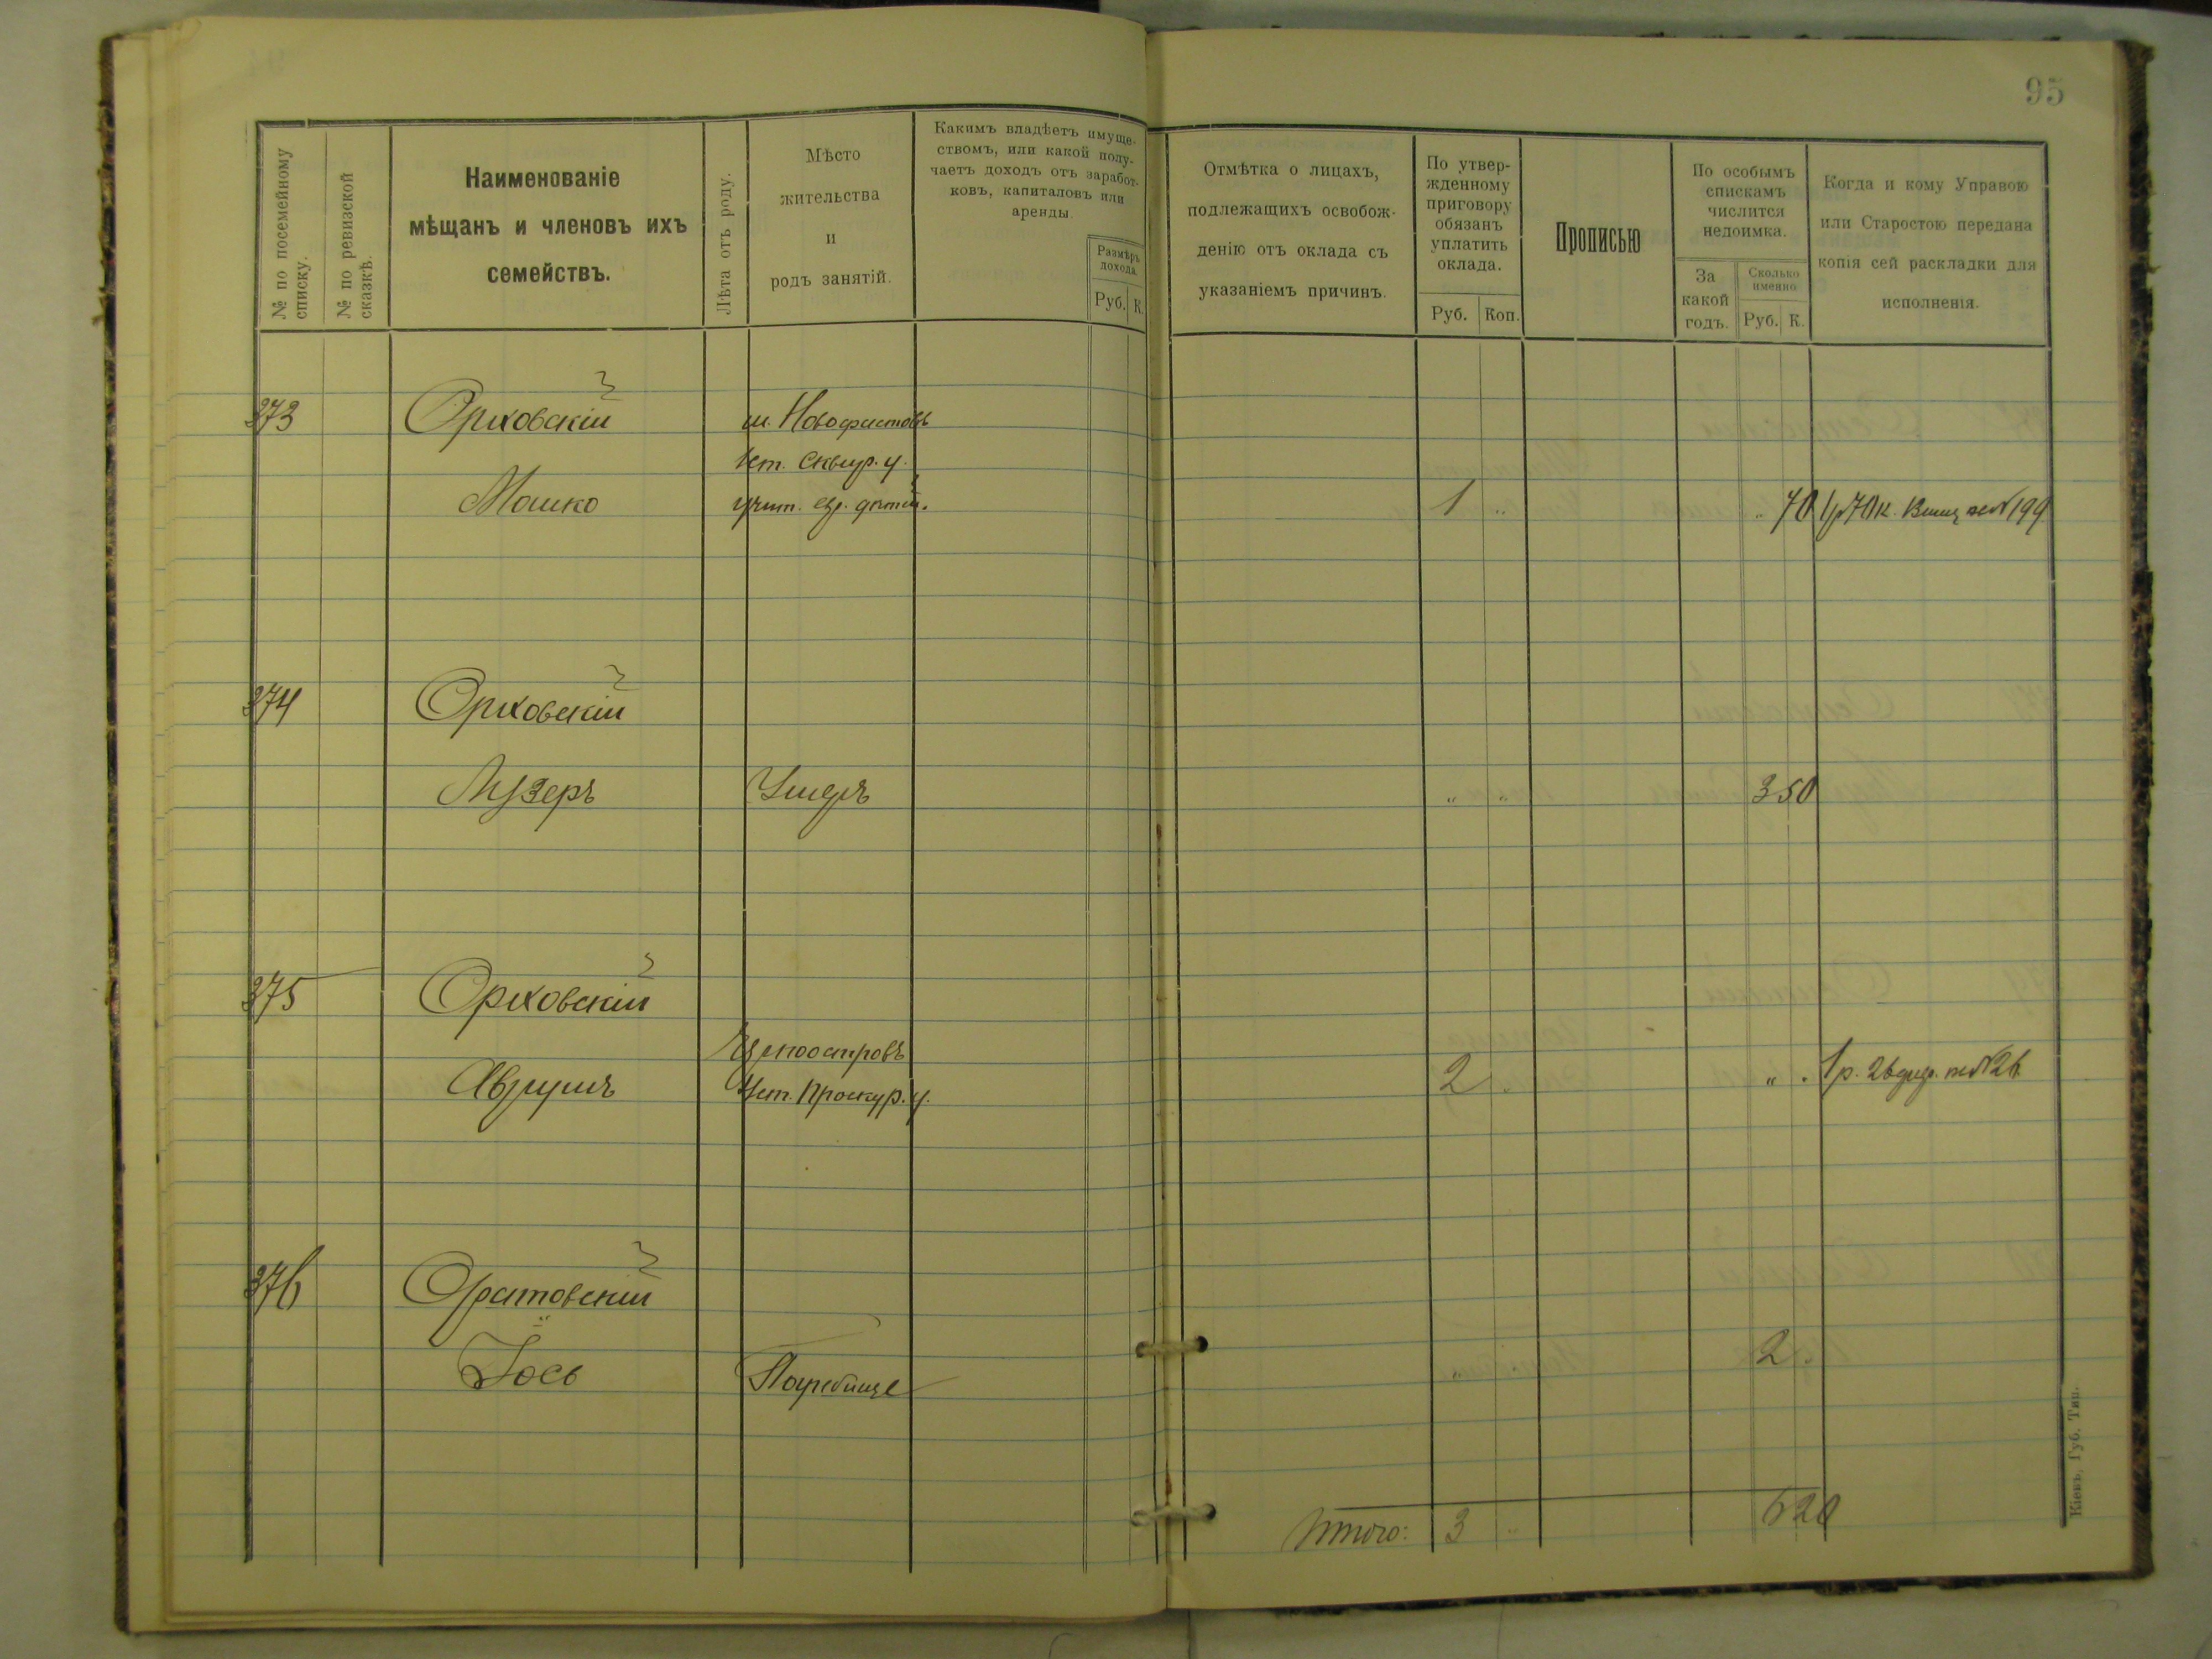 95
№ по посемейному
списку.
№ по ревизской
сказкѣ.
Наименованіе
мѣщанъ и членовъ ихъ
семействъ.
Лѣта отъ роду.
Мѣсто
жительства
и
родъ занятій.
Какимъ владѣетъ имуще-
ствомъ, или какой полу-
чаетъ доходъ отъ заработ-
ковъ, капиталовъ или
аренды.
Размѣръ
дохода.
Руб. К.
Отмѣтка о лицахъ,
подлежащихъ освобож-
денію отъ оклада съ
указаніемъ причинъ.
По утвер-
жденному
приговору
обязанъ
уплатить
оклада.
Руб. Коп.
Прописью
По особымъ
спискамъ
числится
недоимка.
За
какой
годъ.
Сколько
именно
Руб. К.
Когда и кому Управою
или Старостою передана
копія сей раскладки для
исполненія.
373 Ориховскій м. Новофастовъ
Сквир. у.
Мошко 1 " " 70 1 р 70 к. № 199
374 Ориховскій
Лузеръ Умеръ " " 3 50
375 Ориховскій
Проскур. у.
Аврумъ 2 " " 1 р. № 26
376 Оратовскій
Іось Погребище " 2 "
Итого: 3 " 6 20
Кіевъ, Губ. Тип.